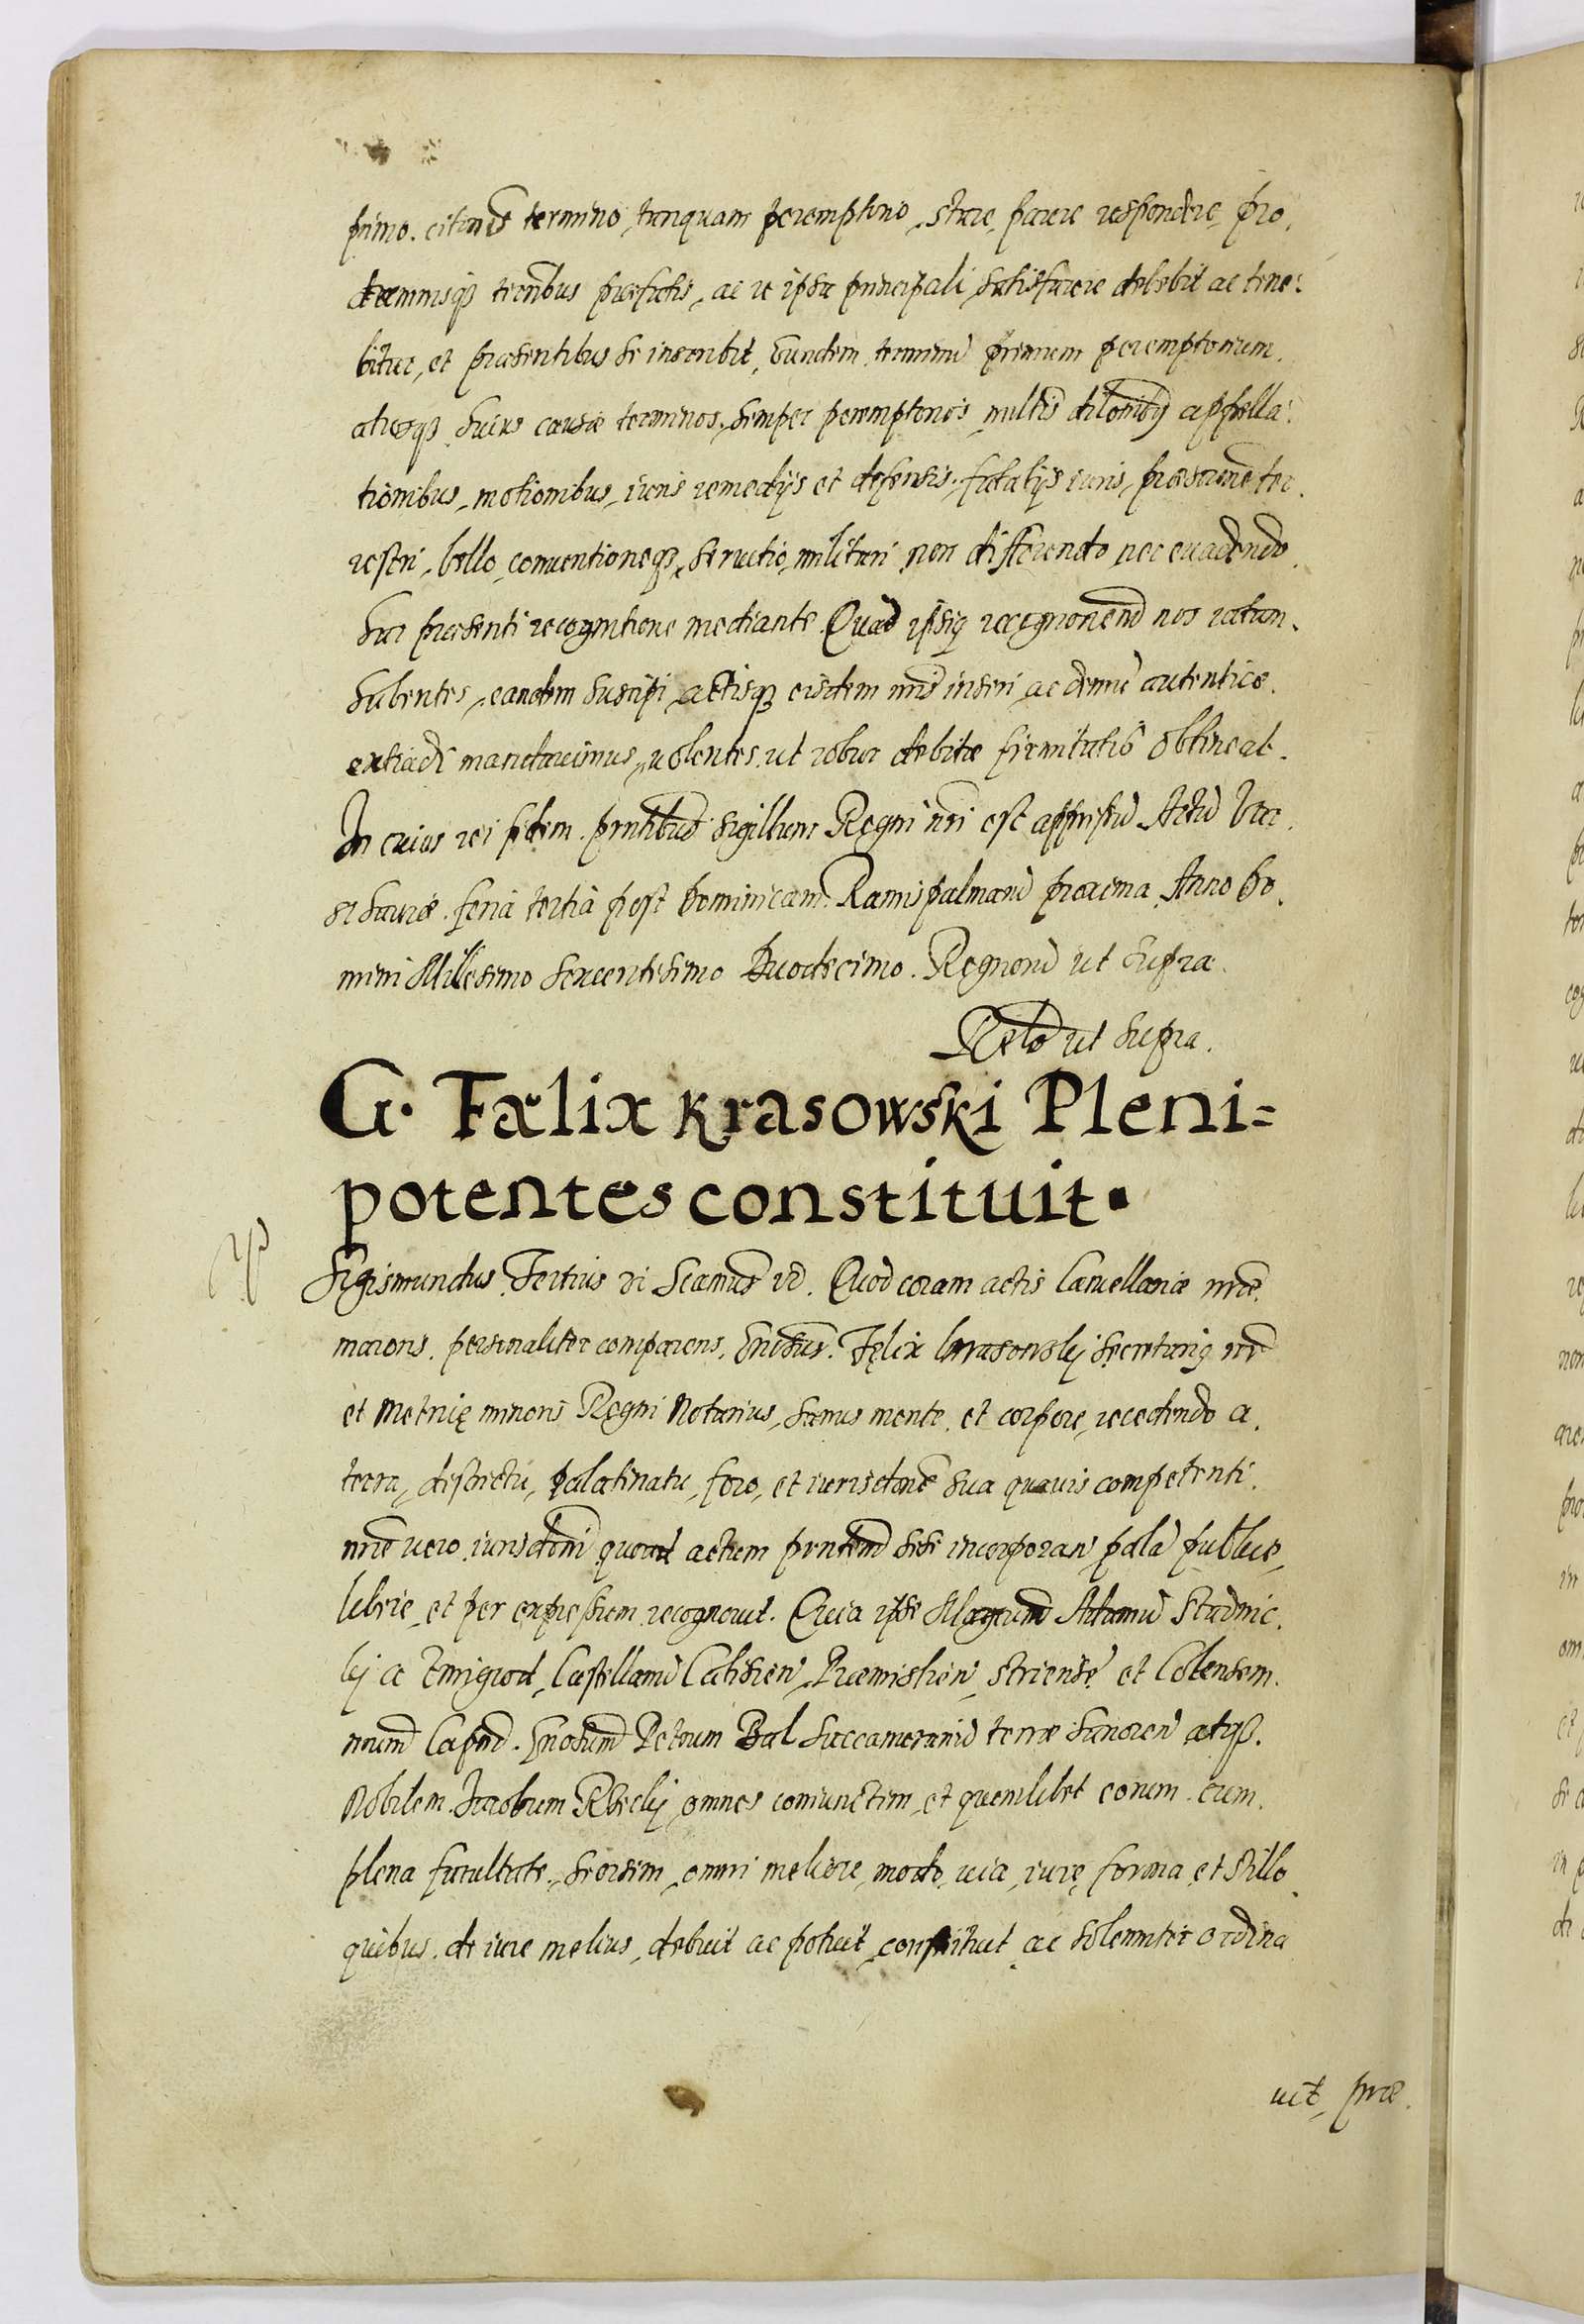 primo citandi termino, tanquam peremptorio, stare, parere respondere, pro
damnisq₃ ternibus praefatis, ac re ipsa principali satisfacere debebit ac tene:
bitur, et praesentibus se inscribit, Eundem terminū primum peremptorium.
aliosq₃ huius causae terminos, semper peremptorios nullis dilonibq appella:
tionibus, motionibus, iuris remedijs et defensis, fatalijs iuris, praescrine ter
restri, bello, conuentioneq₃, seruitio militari non differendo nec euadendo
sui praesenti recognitione mediante. Quad ipsiq recgnonem nos ratam
habentes, eandem suscipi, actisq₃ eisdem nris inseri ac demū autentice
extradi mandauimus, volentes ut robur debitae firmitatis obtineat.
In cuius rei fidem. prntibus sigillum Regni nri est appressū Actū Var
si Sauiae. feria tertia post Dominicam Ramispalmarū proxima Anno Do
mini Millesimo sexcentesimo Duodecimo. Regnorū ut supra
Relō ut supra.
G. Fælix Krasowski Pleni=
potentes constituit.
Sigismundus Tertius di Scamus vd. Quod coram actis Cancellariae nrae
maioris, personaliter comparens, Gnrosus. Fęlix Krasowsky Secretariq nr
et Metricę minoris Regni Notarius, sanus mente et corpore, recedendo a
terra, districtu, palatinatu, foro, et iurisdtone sua quauis competenti
nrae vero iurisdtoni quoad actum prntem sese incorporan palā publice,
libere, et per expressum recognouit. Quia ipse Magcum Adamū Stadnic
ky a Zmigrod, Castellanū Calissien, Praemislien, striensē et Colensem
nrum Capnm. Gnosum Petrum Bal Succamerariū terrae Sanocen atq₃
Nobilem Jacobum omnes coniunctim, et quemlibet eorum cum
plena facultate, seorsim, omni meliore, modo, via, iurę, forma et stillo
quibus de iure melius, debuit ac potuit, constituit ac solenniter ordina
uit, prae